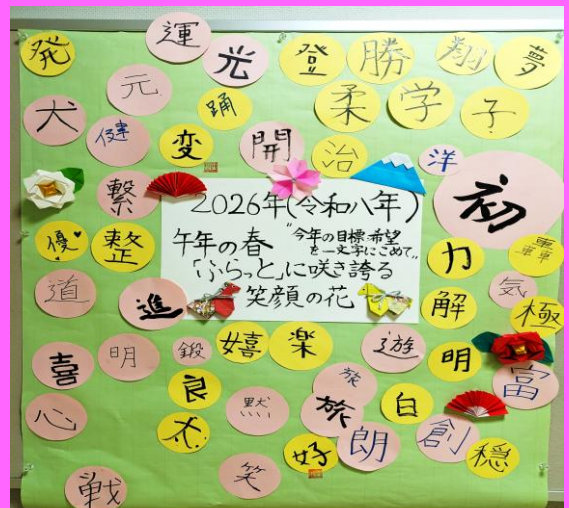 発
運
光
登
勝
翔
夢
元
踊
柔
学
子
犬
健
変
開
治
洋
繋
初
2026年(令和八年)
午年の春
"今年の目標・希望
を一文字にこめて"
「ふらっと」に咲き誇る
笑顔の花
優
整
力
道
進
解
気
極
喜
明
鍛
嬉
楽
遊
明
富
良
黙
旅
旅
白
心
太
好
朗
創
穏
戦
笑